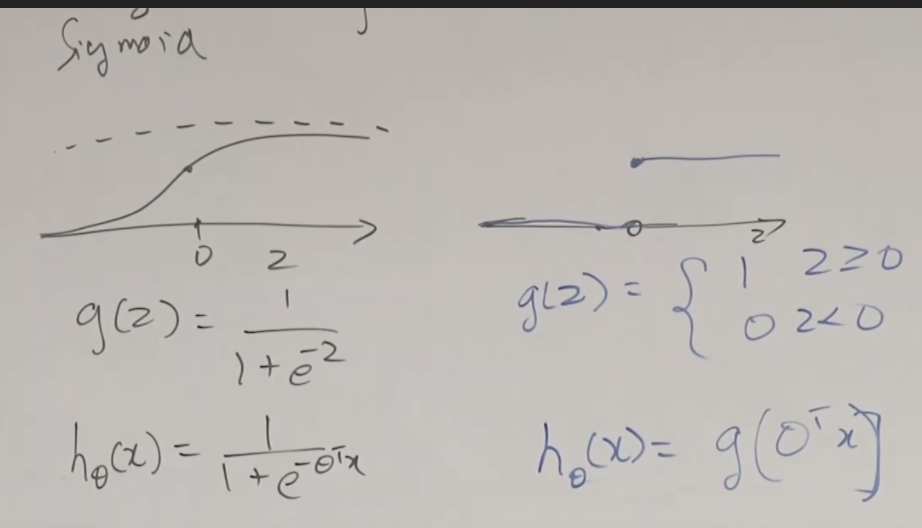 Sigmoid
0 z
g(z) = 1 / (1 + e^-z)
h_θ(x) = 1 / (1 + e^-θ^T x)
0 z
g(z) = { 1 z ≥ 0
0 z < 0
h_θ(x) = g(θ^T x)